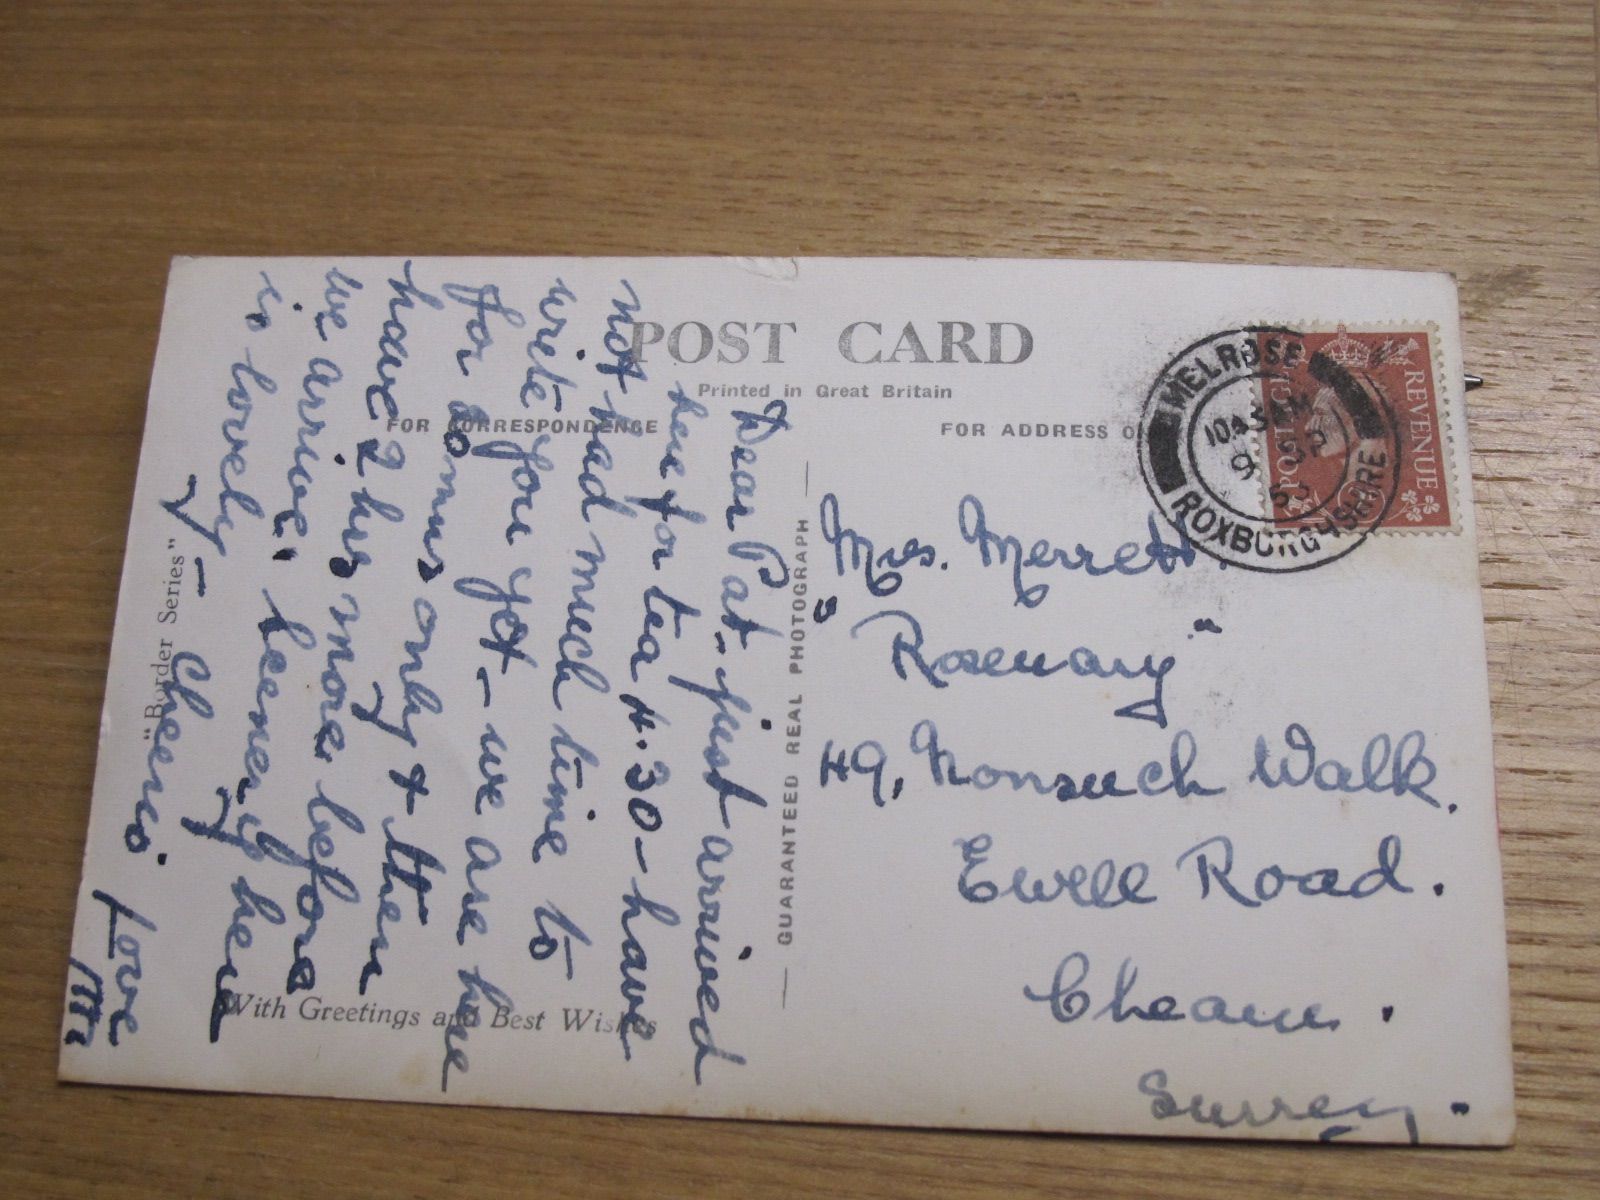 POST CARD
Printed in Great Britain
FOR CORRESPONDENCE
FOR ADDRESS O
Dear Pat - just arrived
here for tea 4.30 - have
not had much time to
write you yet - we are here
for 20 mins only & then
have 2 hrs more before
we arrive. Scenery here
is lovely -
Cheerio. Love
"Border Series"
With Greetings and Best Wishes
GUARANTEED REAL PHOTOGRAPH
Mrs. Merrett.
"Rosemary"
49, Nonsuch Walk.
Ewell Road.
Cheam.
Surrey.
MELROSE
10.45 AM
9 SP
ROXBURGHSHIRE
POSTAGE
REVENUE